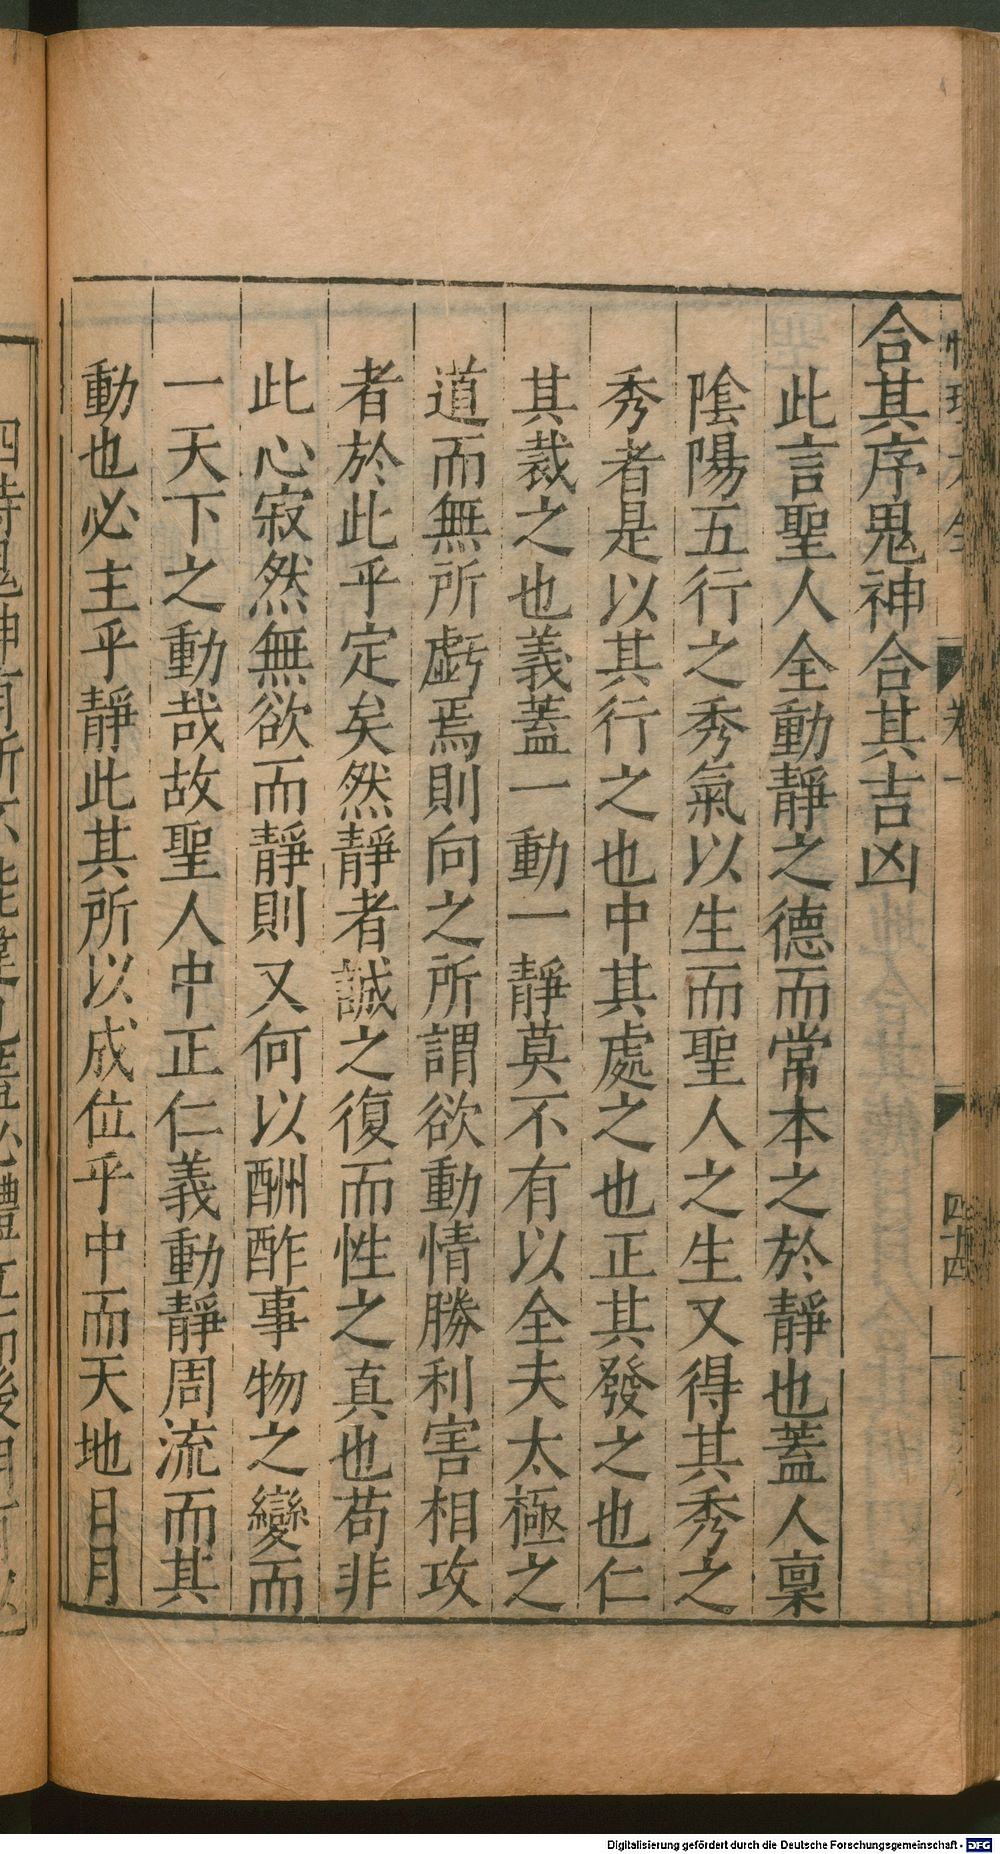 合其序鬼神合其吉凶
此言聖人全動靜之德而常本之於靜也蓋人稟
陰陽五行之秀氣以生而聖人之生又得其秀之
秀者是以其行之也中其處之也正其發之也仁
其裁之也義蓋一動一靜莫不有以全夫太極之
道而無所虧焉則向之所謂欲動情勝利害相攻
者於此乎定矣然靜者誠之復而性之真也苟非
此心寂然無欲而靜則又何以酬酢事物之變而
一天下之動哉故聖人中正仁義動靜周流而其
動也必主乎靜此其所以成位乎中而天地日月
Digitalisierung gefördert durch die Deutsche Forschungsgemeinschaft - DFG